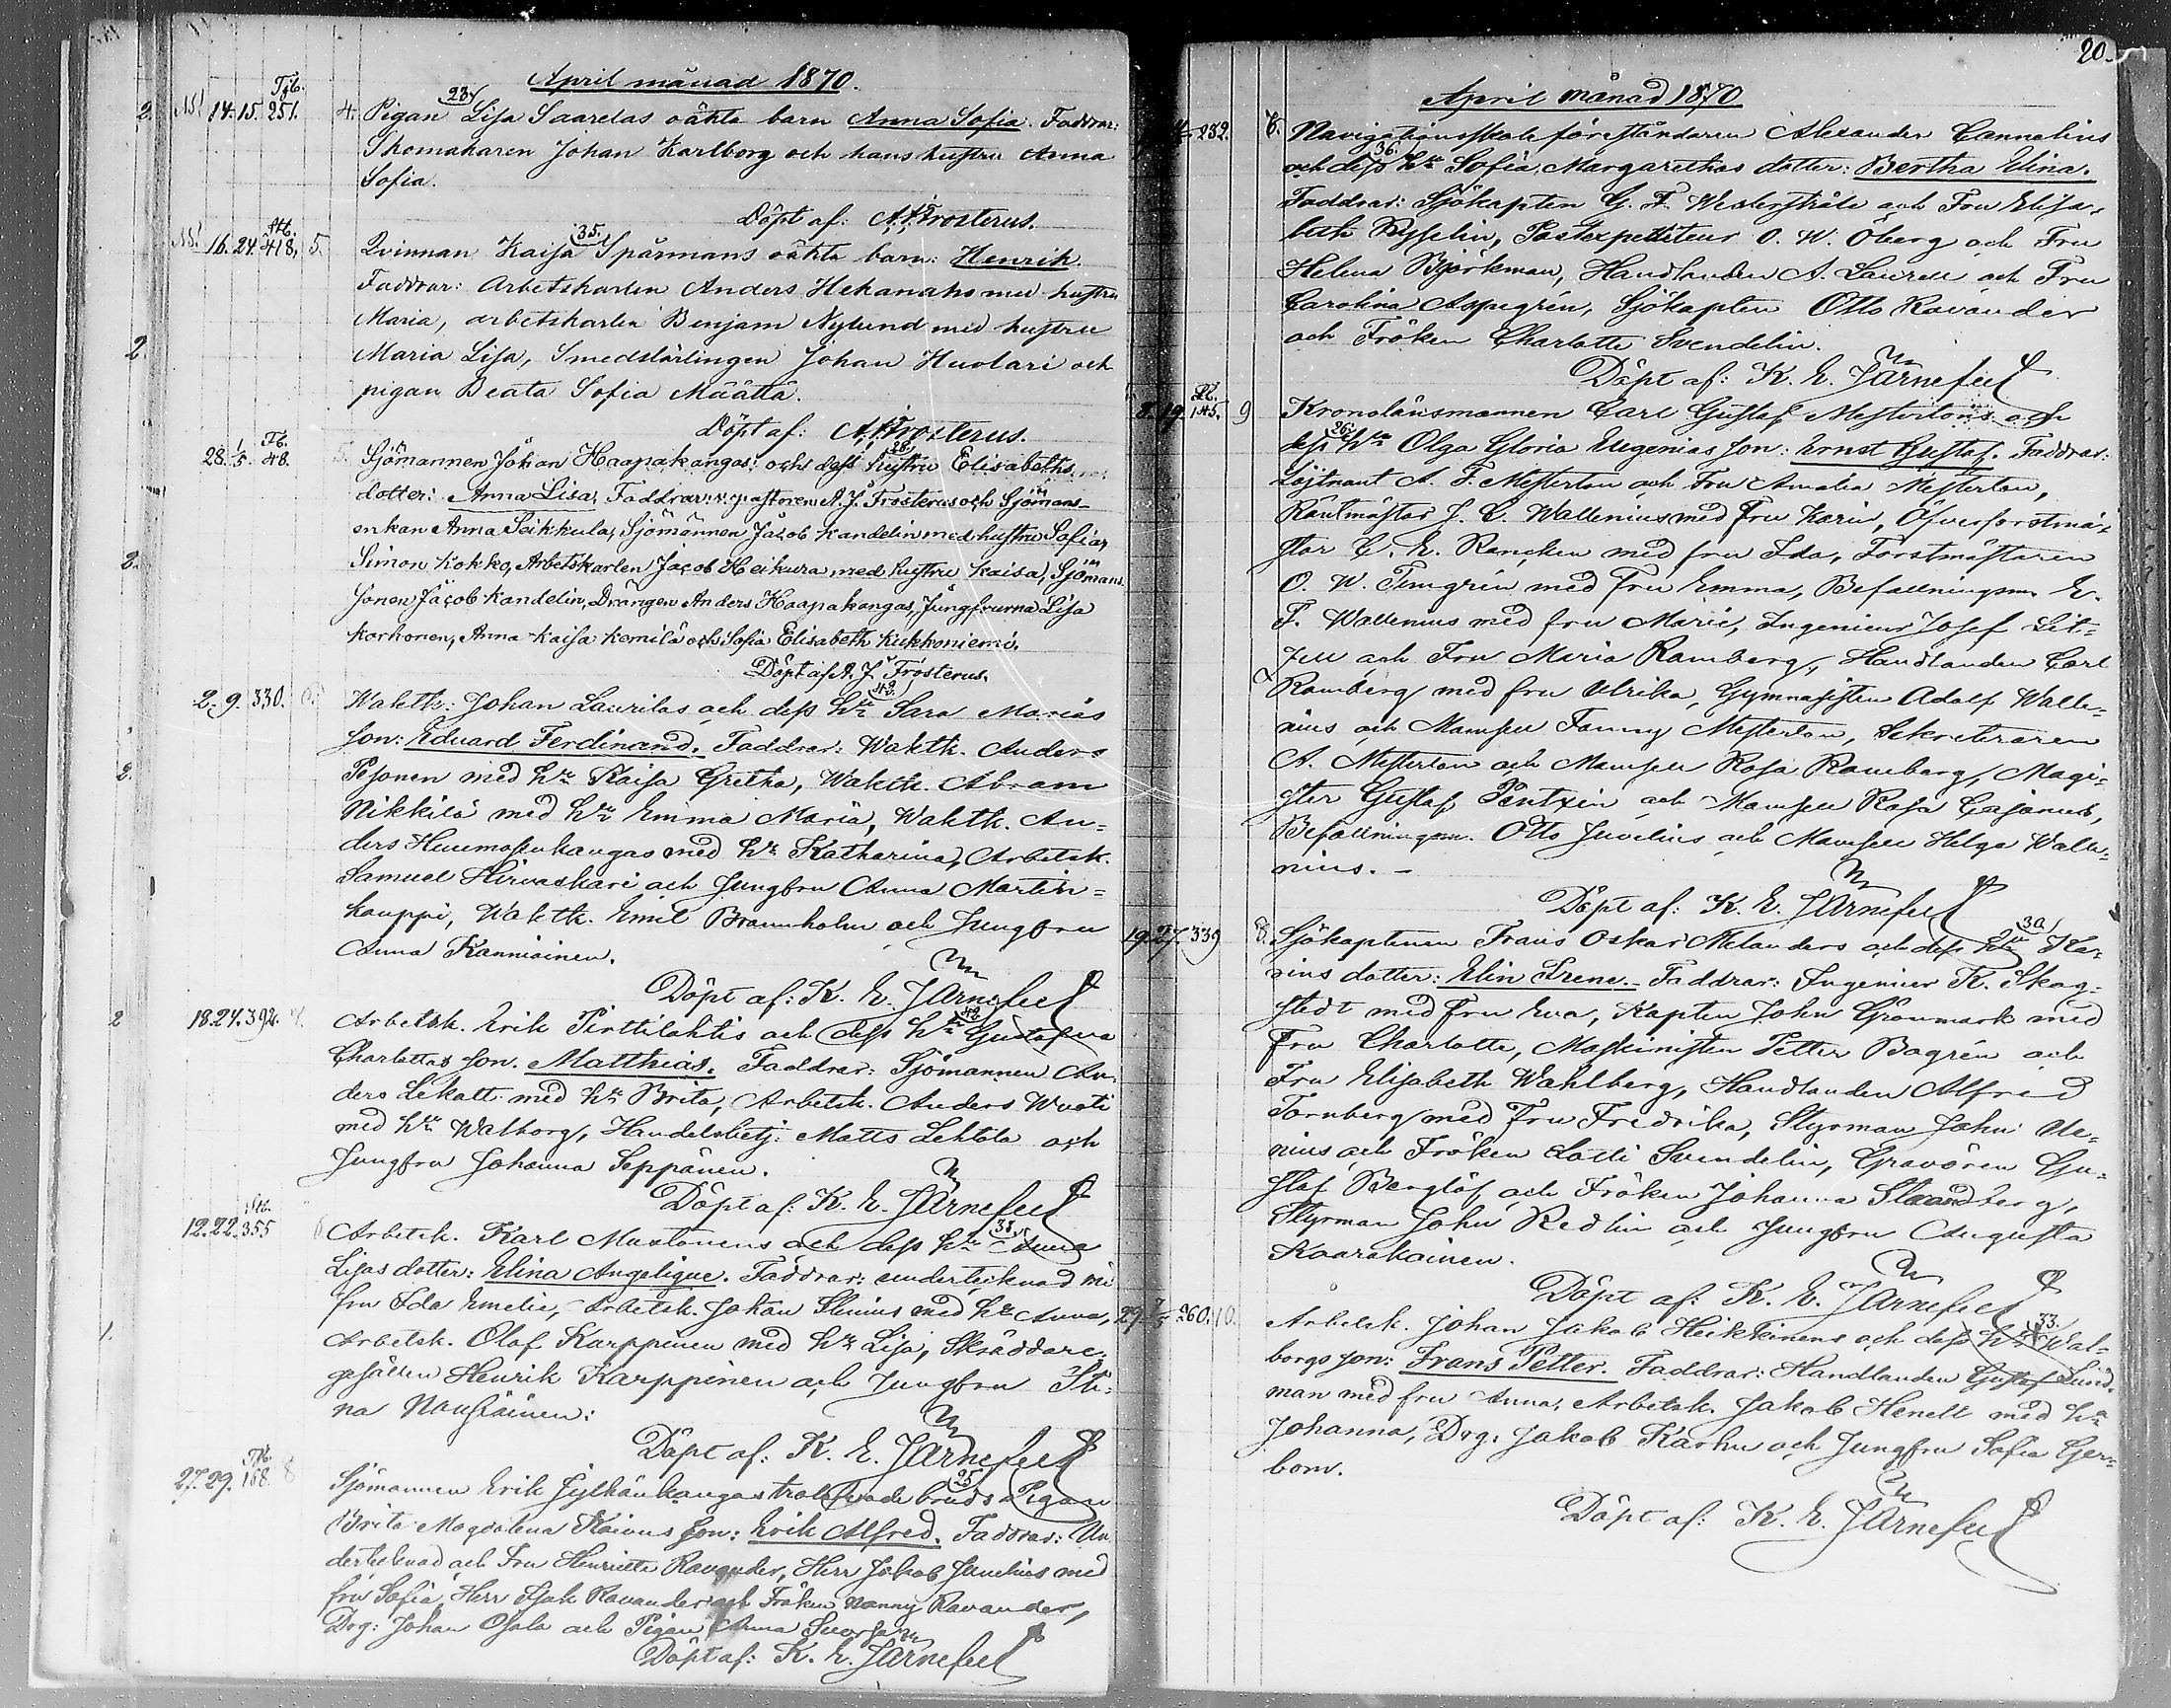 April månad 1870.
2 NS! 14. 15. Tjb. 251. 4. Pigan 23/ Lisa Saarelas oäkta barn Anna Sofia. Faddrar:
Skomakaren Johan Karlborg och hans hustru Anna
Sofia.
Döpt af: A. J. Frosterus.
NS! 16. 24. 418, 5. Qvinnan Kaisa 35. Spårmans oäkta barn: Henrik.
Faddrar: Arbetskarlen Anders Hekanaho med hustru
Maria, arbetskarlen Benjam Nylund med hustru
2. Maria Lisa, Smedslärlingen Johan Huolari och
pigan Beata Sofia Määttä.
Döpt af: A. J. Frosterus.
28. 1/5. Tb. 48. 5. Sjömannen Johan Haapakangas' och dess hustru 28. Elisabeths
dotter: Anna Lisa, Faddrar: v. pastoren A. J. Frosterus och Sjömans-
enkan Anna Seikkula, Sjömannen Jacob Kandelin med hustru Sofia,
Simon Kokko, Arbetskarlen Jacob Heikura med hustru Kaisa, Sjömans
sonen Jacob Kandelin, Drängen Anders Haapakangas, Jungfrurna Lisa
Korhonen, Anna Kaisa Komilä och Sofia Elisabeth Kukkoniemi.
Döpt af A. J. Frosterus.
2. 9. 330. 6. Waktk: Johan Laurilas och dess hru 42. Sara Marias
son: Eduard Ferdinand. Faddrar: Waktk. Anders
2. Pesonen med hru Kaisa Gretha, Waktk. Abram
Nikkilä med hru Emma Maria, Waktk. An=
ders Huumosenkangas med hru Katharina, Arbetsk.
Samuel Hirvaskari och Jungfru Anna Martin=
kauppi, Waktk. Emil Braunholm och Jungfru
Anna Kanniainen.
Döpt af: K. E. Järnefelt
2 18. 24. 392. 7. Arbetsk. Erik Pirttilahtis och dess hru 42. Gustafva
Charlottas son. Matthias. Faddrar: Sjömannen An-
ders Lekatt med hru Brita, Arbetsk. Anders Wuoti
med hru Walborg, Handelsbetj: Matts Lehtola och
Jungfru Johanna Seppänen.
Döpt af: K. E. Järnefelt
12. 22. 355 Arbetsk. Karl Mustonens och dess hru 38. Anna
Lisas dotter: Elina Angelique. Faddrar: undertecknad m
fru Ida Emelie, Arbetsk. Johan Stenius med hru Anna,
1. Arbetsk. Olof Karppinen med hru Lisa, Skräddare-
gesällen Henrik Karppinen och Jungfru Sti-
na Nousiainen:
Döpt af: K. E. Järnefelt
27. 29. 168. 8 Sjömannen Erik Jylhänkangas trolofvade bruds 25 Pigan
Brita Magdalena Koivus son: Erik Alfred. Faddrar: Un
dertecknad och Fru Henriette Ravander, Herr Jakob Junelius med
fru Sofia, Herr Isak Ravander och Fröken Nanny Ravander,
Drg: Johan Ojala och Pigan Anna Suorsa
Döpt af: K. E. Järnefelt
20.
April månad 1870
232. 6. Navigationsskole föreståndaren Alexander Cannelins
och dess 36. hru Sofia Margarethas dotter: Bertha Elina.
Faddrar: Sjökapten G. F. Westerstråle och Fru Elisa-
beth Rysselin, Postexpediteur O. W. Öberg och Fru
Helena Björkman, Handlanden A. Laurell och Fru
Carolina Aspegrén, Sjökapten Otto Ravander
och Fröken Charlotte Svendelin.
Döpt af: K. E. Järnefelt
8. 19. 145. 9 Kronolänsmannen Carl Gustaf Mestertons och
dess 26. hru Olga Gloria Eugenias son: Ernst Gustaf. Faddrar:
Löjtnant A. F. Mesterton och Fru Amalia Mesterton,
Räntmästar J. C. Wallenius med fru Karin, Öfverforstmä-
star C. E. Rancken med fru Ida, Forstmästaren
O. W. Timgrén med fru Emma, Befallningsm. E.
F. Wallenius med fru Marie, Ingenieur Josef Lit=
zell och Fru Maria Ramberg, Handlanden Carl
Ramberg med fru Ulrika, Gymnasisten Adolf Walle=
nius och Mamsell Fanny Mesterton, Sekreteraren
A. Mesterton och Mamsell Rosa Ramberg, Magi=
ster Gustaf Pentzin och Mamsell Rosa Cajanus,
Befallningsm. Otto Juvelius och Mamsell Helga Walle=
nius. -
Döpt af: K. E. Järnefelt
19. 27. 339 8. Sjökaptenen Frans Oskar Melanders och dess hru 30 Ka-
rins dotter: Elin Irene. - Faddrar: Ingenieur K. Skog-
stedt med fru Eva, Kapten John Grönmark med
Fru Charlotte, Maskinisten Petter Bagrén och
Fru Elisabeth Wahlberg, Handlanden Alfred
Tornberg med Fru Fredrika, Styrman John Ue-
nius och Fröken Lotti Svendelin, Gravören Gu-
staf Berglöf och Fröken Johanna Strandberg,
Styrman John Redlin och Jungfru Augusta
Kaarakainen.
Döpt af: K. E. Järnefelt
29. 7/5 260. 10. Arbetsk. Johan Jakob Heikkinens och dess hru 33. Wal=
borgs son: Frans Petter. Faddrar: Handlanden Gustaf Sund-
man med fru Anna, Arbetsk. Jakob Henell med hru
Johanna, Drg: Jakob Karhu och Jungfru Sofia Ger-
bom.
Döpt af: K. E. Järnefelt